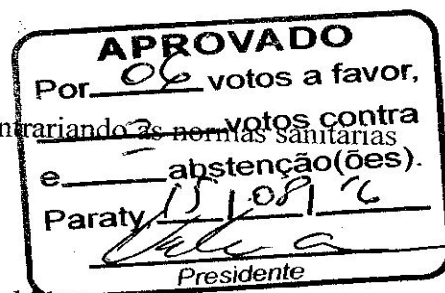 APROVADO
Por 06 votos a favor,
contrariando as normas sanitárias
votos contra
e abstenção(ões).
Paraty 15/08/
Presidente